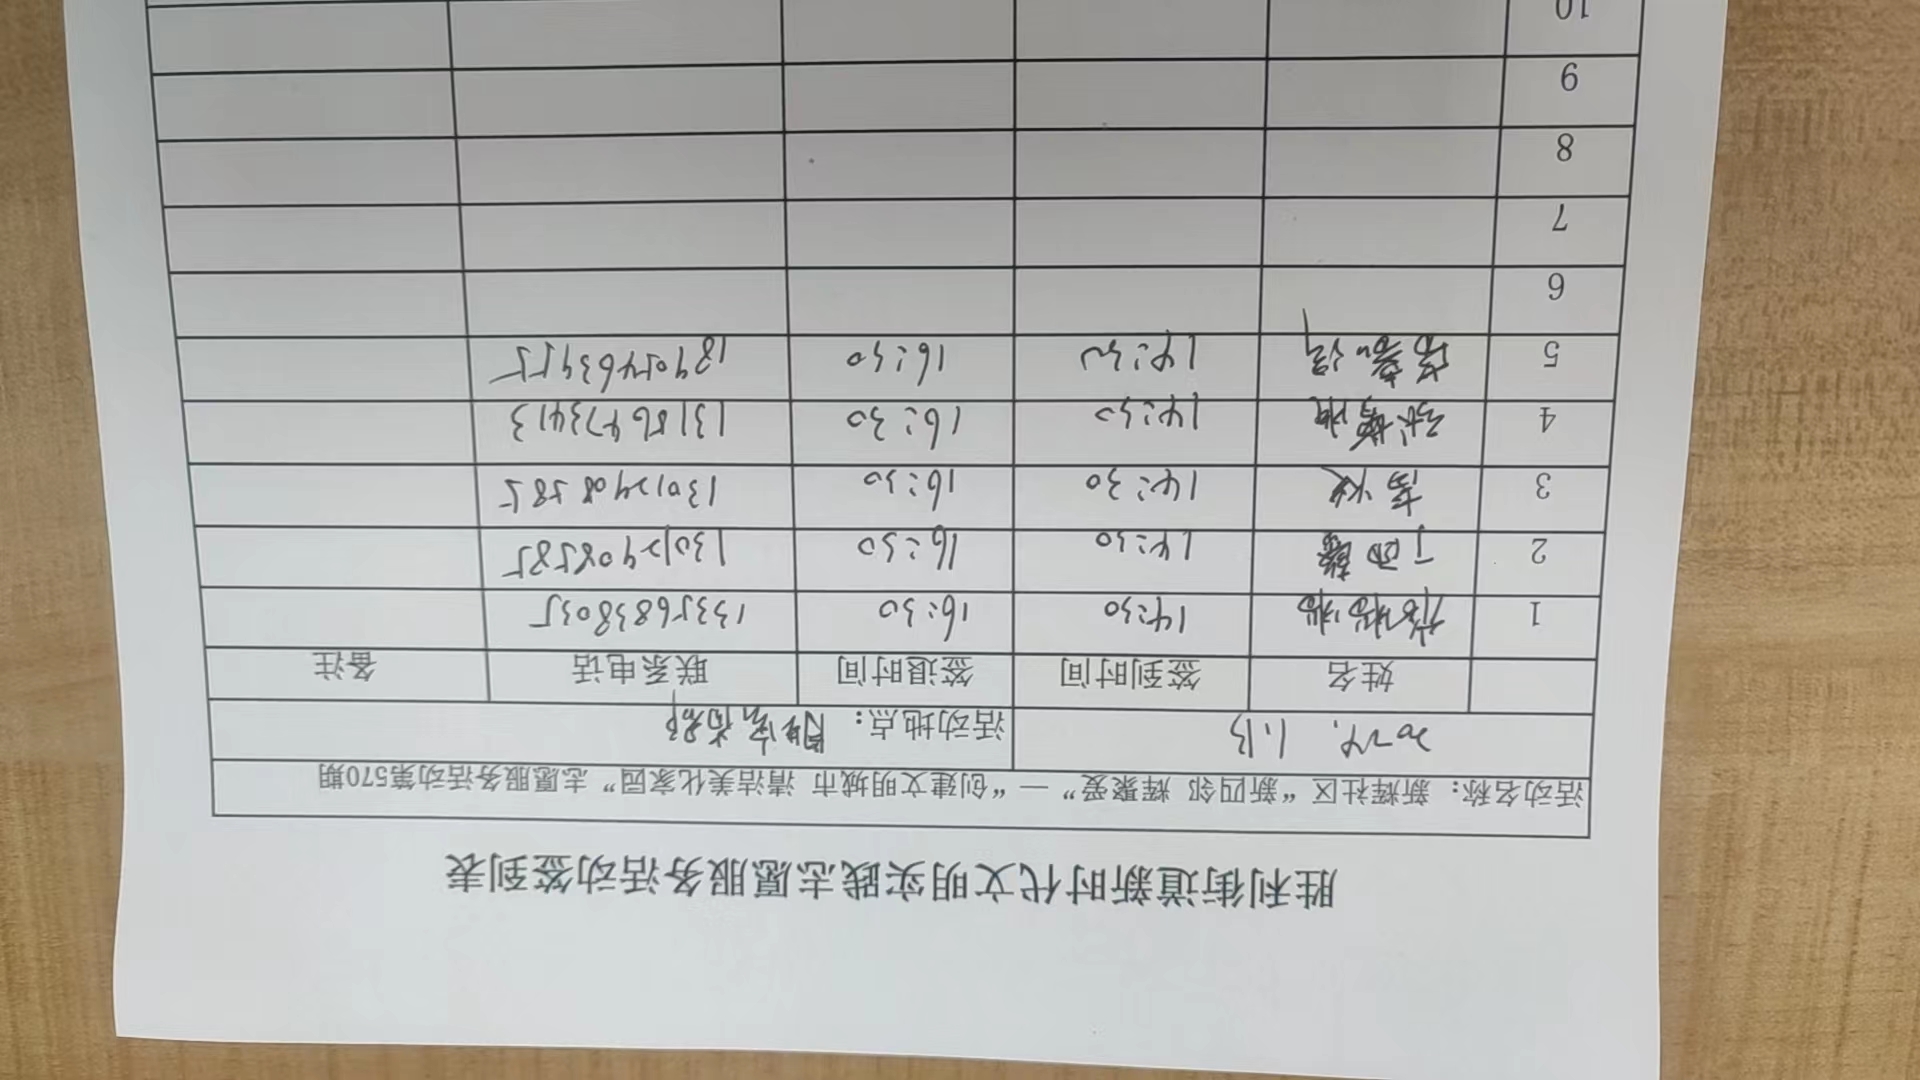 胜利街道新时代文明实践志愿服务活动签到表
活动名称：新辉社区“新四邻 辉聚爱”—“创建文明城市 清洁美化家园”志愿服务活动第570期
2024. 1.13 活动地点：
姓名 签到时间 签退时间 联系电话 备注
1 14:30 16:30 13356838035
2 丁西馨 14:30 16:30 13012908585
3 14:30 16:30 13012908585
4 14:30 16:30 13186473413
5 14:30 16:30 18905463955
6
7
8
9
10